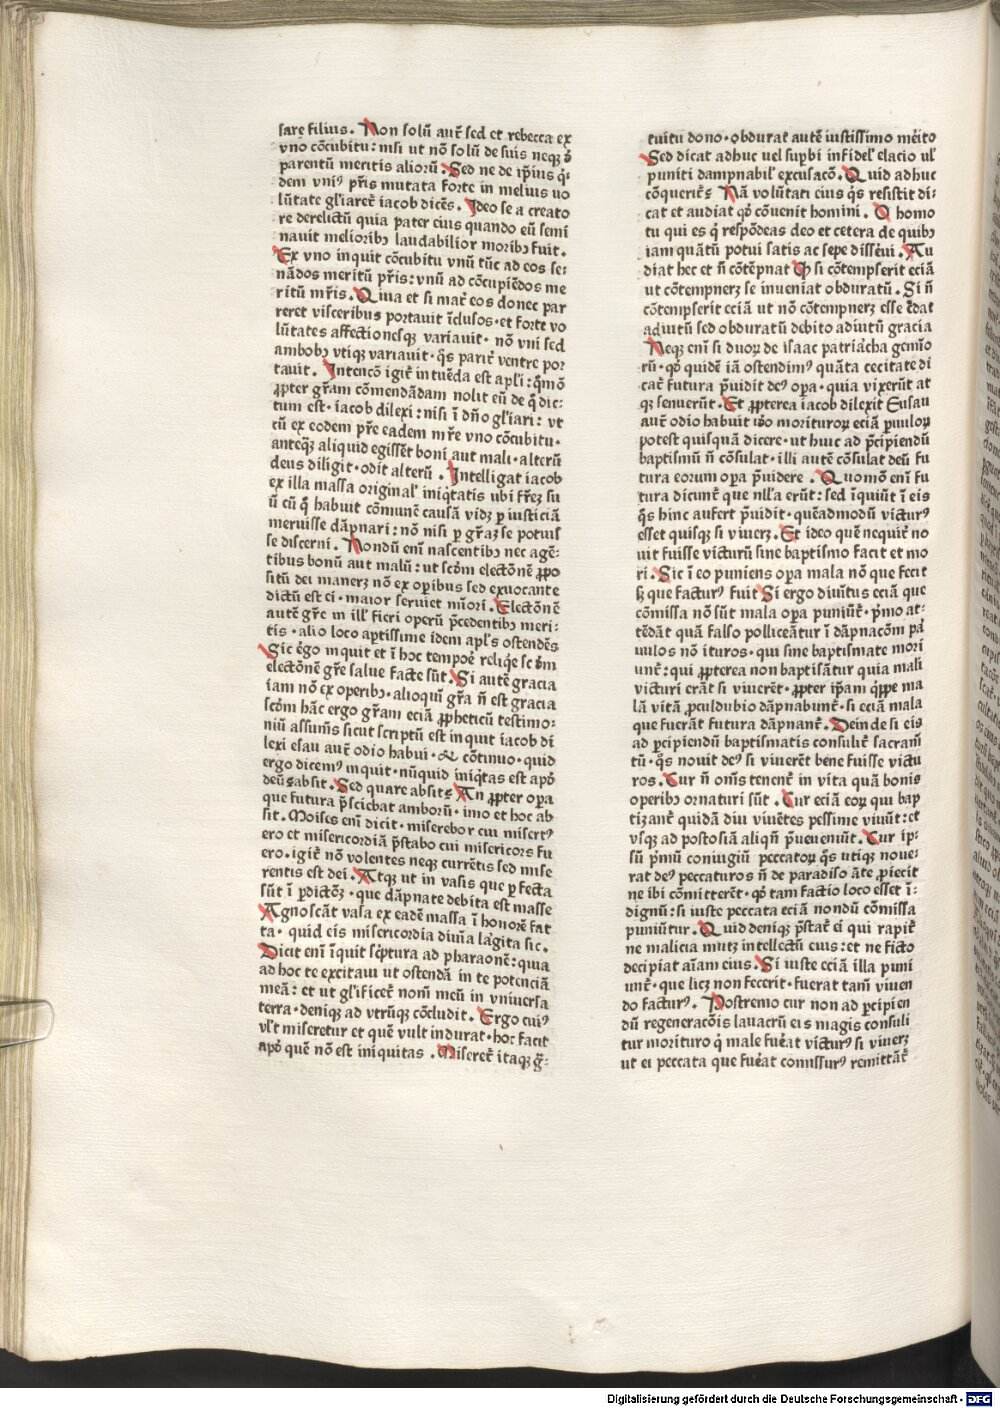 sare filius. Non solū aut̄ sed et rebecca ex
vno cōcubitu: nisi ut nō solū de suis neqꝫ ꝺ̾
parentū meritis aliorū. Sed ne de ip̄ius q̇-
dem vniꝰ pr̄is mutata forte in melius uo
lūtate gl̄iaret̄ iacob dicēs. Ideo se a creato
re derelictū quia pater eius quando eū semi
nauit melioribꝫ laudabilior moribꝫ fuit.
Ex vno inquit cōcubitu vnū tūc ad eos se-
nādos meritū pr̄is: vnū ad cōcupiēdos me
ritū mr̄is. Quia et si mat̄ eos donec par
reret visceribus portauit īclusos · et forte vo
lūtates affectionesqꝫ variauit · nō vni sed
ambobꝫ vtiqꝫ variauit · q̄s parit̄ ventre por
tauit. Intencō igit̄ intuēda est apl̄i: q̄mō
ꝓpter gr̄am cōmendādam nolit eū de q̄ dic-
tum est · iacob dilexi: nisi ī dn̄o gl̄iari: vt
cū ex eodem pr̄e eadem mr̄e vno cōcubitu ·
anteqꝫ aliquid egissēt boni aut mali · alterū
deus diligit · odit alterū. Intelligat iacob
ex illa massa original̄ iniq̇tatis ubi fr̄eꝫ su
ū cū q̄ habuit cōmunē causā vidꝫ ꝑ iusticiā
meruisse dāpnari: nō nisi ꝑ gr̄aꝫ se potuis
se discerni. Nondū enī nascentibꝫ nec agē-
tibus bonū aut malū: ut scd̄m electōnē ꝓpo
sitū dei manerꝫ nō ex oꝑibus sed exuocante
dictū est ei · maior seruiet mīori. Electōnē
autē gr̄e in ill̄ fieri operū p̄cedentibꝫ meri-
tis · alio loco aptissime idem apl̄s ostendēs
Sic ēgo inquit et ī hoc tempoē reliq̄e scd̄m
electōnē gr̄e salue facte sūt. Si autē gracia
iam nō ex operibꝫ · alioquī gr̄a n̄ est gracia
scd̄m hāc ergo gr̄am eciā ꝓpheticū testimo-
niū assumīs sicut scriptū est inquit iacob di
lexi esau aut̄ odio habui · & cōtinuo · quid
ergo dicemꝰ inquit · nūquid iniq̇tas est apꝺ̄
deūs absit. Sed quare absits An ꝓpter oꝑa
que futura p̄sciebat amborū · imo et hoc ab
sit. Moises enī dicit · miserebor cui misertꝰ
ero et misericordiā p̄stabo cui misericors fu
ero · igit̄ nō volentes neqꝫ currētis sed mise
rentis est dei. Atqꝫ ut in vasis que ꝑfecta
sūt ī ꝑdictōꝫ · que dāpnate debita est masse
Agnoscāt vasa ex eadē massa ī honorē fat
ta · quid eis misericordia diuīa largita sic.
Dicit enī īquit scptura ad pharaonē: quia
ad hoc te excitaui ut ostendā in te potenciā
meā: et ut gl̄ificet̄ nom̄ meū in vniuersa
terra · deniqꝫ ad vtrūqꝫ cōcludit. Ergo cuiꝰ
vl̄t miseretur et quē vult indurat · hoc facit
apꝺ̄ quē nō est iniquitas. Miseret̄ itaqꝫ gͣ-
tuitu dono · obdurat autē iustissimo meīto
Sed dicat adhuc uel suꝑbi infidel̄ elacio ul̄
puniti dampnabil̄ excusacō. Quid adhuc
cōqueriēs Nā volūtati eius q̇s resistit di-
cat et audiat qd̄ cōuenit homini. O homo
tu qui es q̇ respōdeas deo et cetera de quibꝫ
iam quātū potui satis ac sepe disseui. Au
diat hec et n̄ cōtēpnat Qd̄ si cōtempserit eciā
ut cōtempnerꝫ se inueniat obduratū. Si n̄
cōtempserit eciā ut nō cōtempnerꝫ esse c̄dat
adiutū sed obduratū debito adiutū gracia
Neqꝫ enī si duoꝝ de isaac patriarcha gemīo
rū · qd̄ quidē iā ostendimꝰ quāta cecitate di
cat̄ futura p̄uidit deꝰ oꝑa · quia vixerūt at
qꝫ senuerūt. Et ꝓpterea iacob dilexit Eusau
aut̄ odio habuit iꝺo moriturorꝫ eciā ꝑuuloꝝ
potest quisquā dicere · ut huic ad ꝑcipiendū
baptismū n̄ cōsulat · illi autē cōsulat deū fu
tura eorum oꝑa p̄uidere. Quomō enī fu
tura dicunt̄ que nlla erūt: sed īquiūt ī eis
q̇s hinc aufert p̄uidit · quēadmodū victurꝰ
esset quisqꝫ si viuerꝫ. Et ideo quē nequit̄ no
uit fuisse victurū sine baptismo facit et mo
ri. Sic ī eo puniens oꝑa mala nō que fecit
sꝫ que facturꝰ fuit Si ergo diuītus eciā que
cōmissa nō sūt mala oꝑa puniūt̄ · p̄mo at-
tēdāt quā falso polliceātur ī dāpnacōm pā
uulos nō ituros · qui sine baptismate mori
unt̄: qui ꝓpterea non baptisātur quia mali
victuri erāt si viuerēt · ꝓpter ip̄am q̄ppe ma
lā vitā ꝓculdubio dāpnabunt̄ · si eciā mala
que fuerāt futura dāpnant̄. Deinde si eis
ad ꝑcipiendū baptismatis consulit̄ sacram̄
tū · q̇s nouit deꝰ si viuerēt bene fuisse victu
ros. Cur n̄ om̄s tenent̄ in vita quā bonis
operibꝫ ornaturi sūt. Cur eciā eorꝫ qui bap
tizant̄ quidā diu viuētes pessime viuūt: et
vsqꝫ ad postosiā aliqn̄ p̄ueueniūt. Cur ip-
sū p̄mū coniugiū peccatoꝝ q̇s utiqꝫ noue-
rat deꝰ peccaturos n̄ de paradiso āte ꝓiecit
ne ibi cōmitterēt · qd̄ tam factio loco esset ī-
dignū: si iuste peccata eciā nondū cōmissa
puniūtur. Quid deniqꝫ p̄stat̄ ei qui rapit̄
ne malicia mutꝫ intellectū eius: et ne ficto
decipiat aīam eius. Si iuste eciā illa puni
unt̄ · que licꝫ non fecerit · fuerat tam̄ viuen
do facturꝰ. Postremo cur non ad ꝑcipien
dū regeneracōis lauacrū eis magis consuli
tur morituro q̇ male fueat victurꝰ si viuerꝫ
ut ei peccata que fueat comissurꝰ remittāt̄
Digitalisierung gefördert durch die Deutsche Forschungsgemeinschaft - DFG